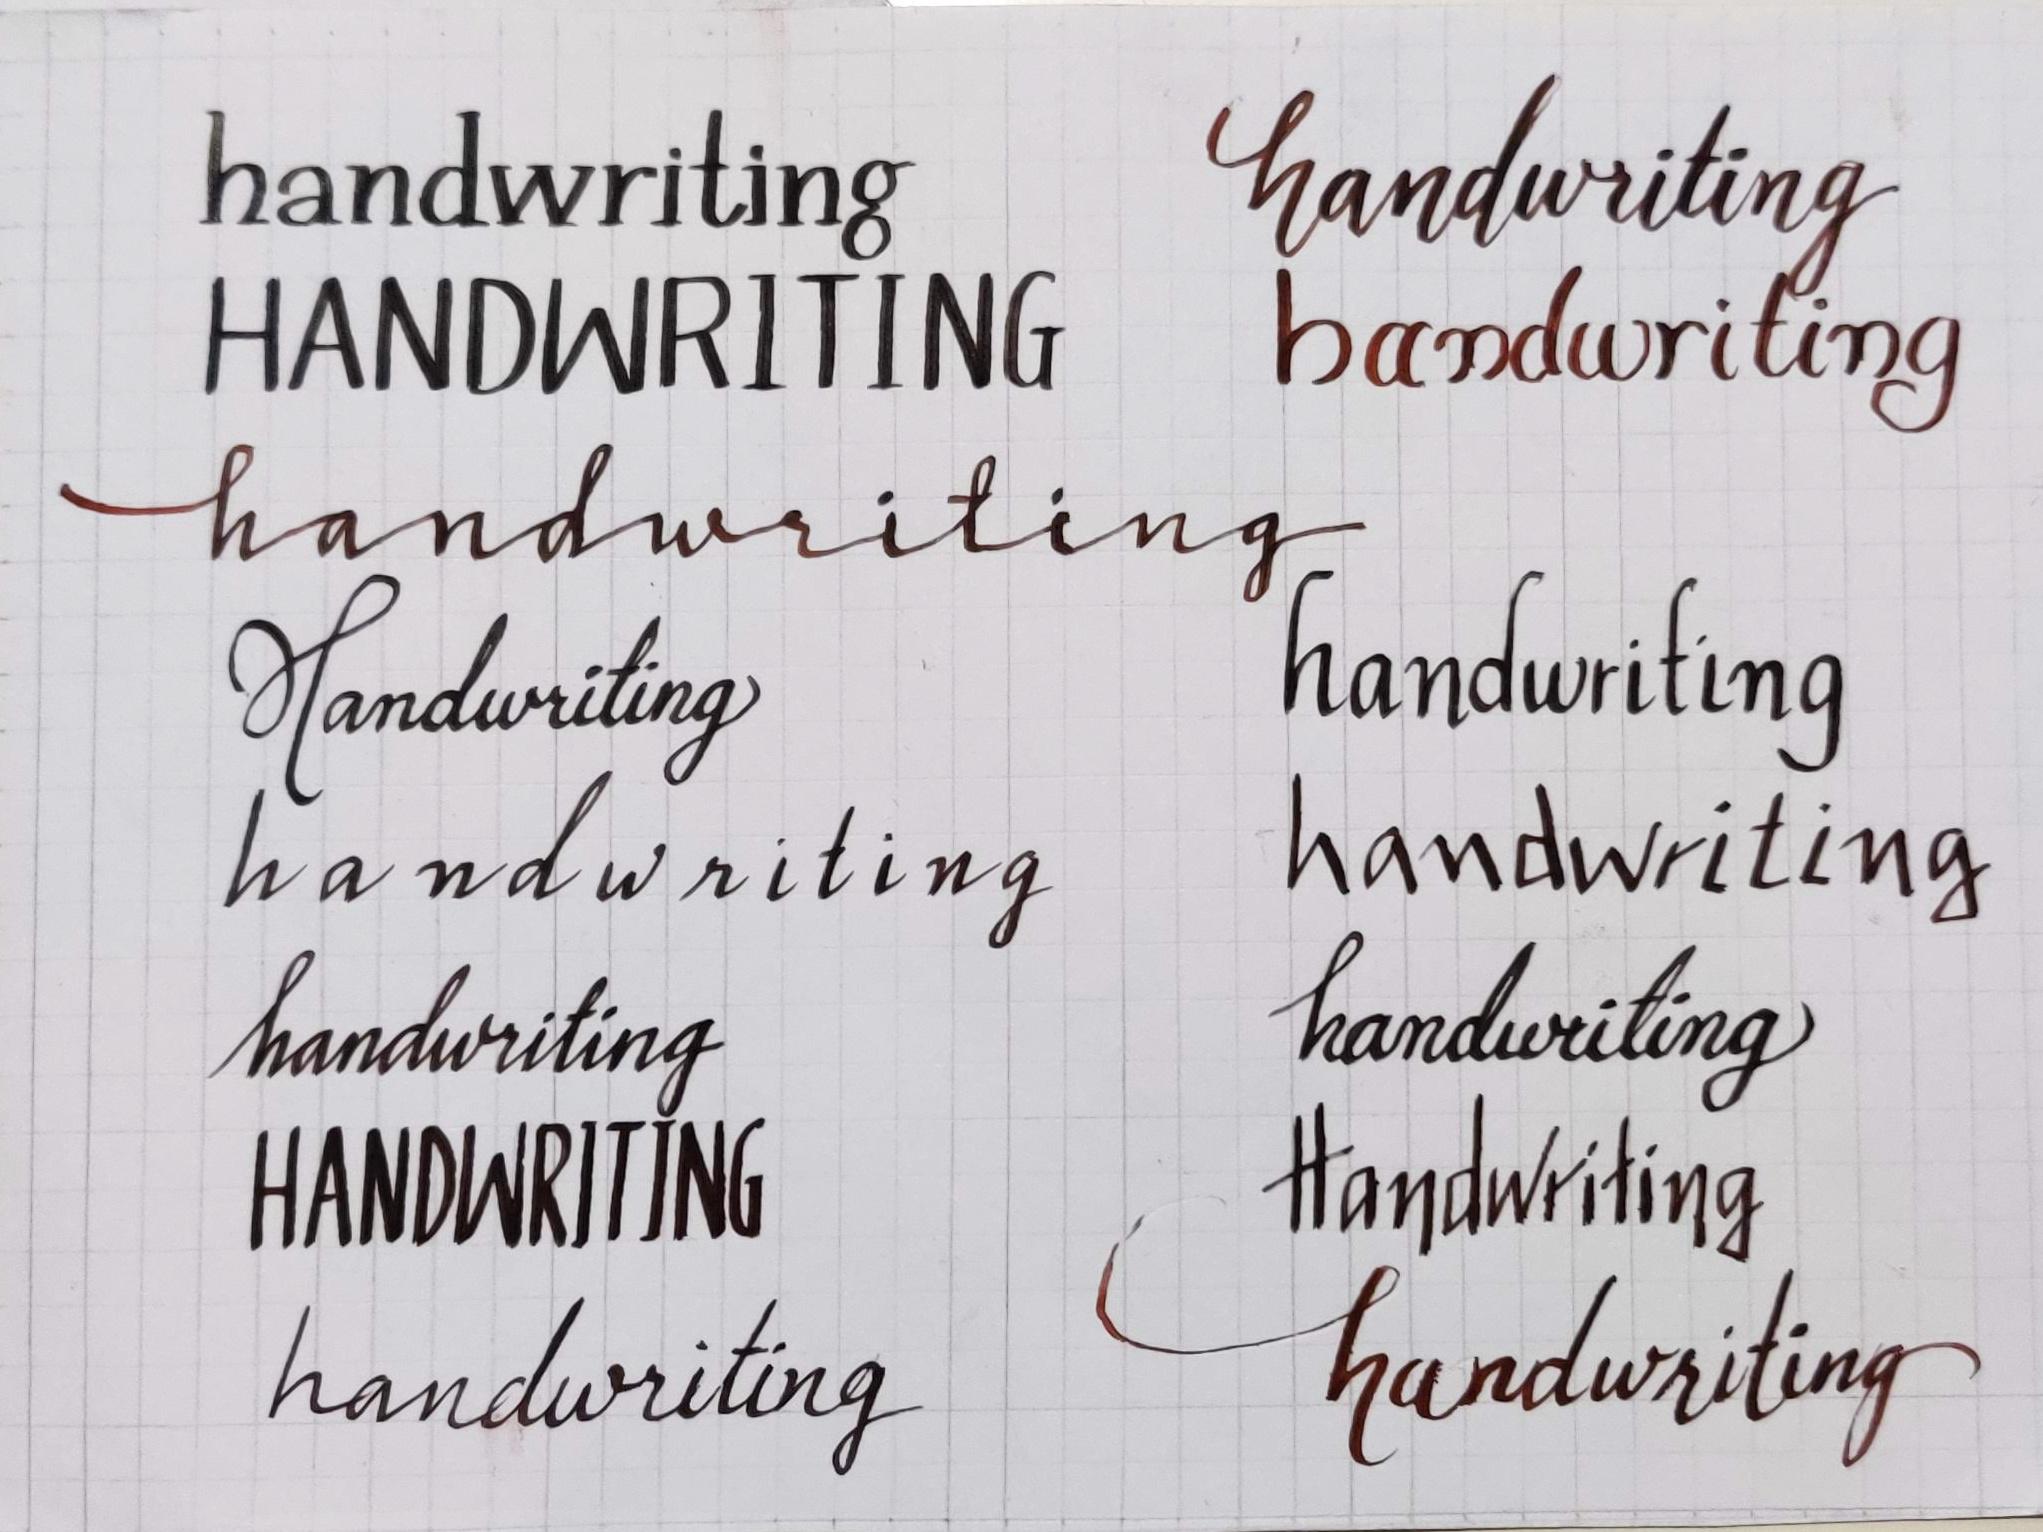 handwriting
HANDWRITING
handwriting
Handwriting
handwriting
handwriting
HANDWRITING
handwriting
handwriting
handwriting
handwriting
handwriting
handwriting
Handwriting
handwriting